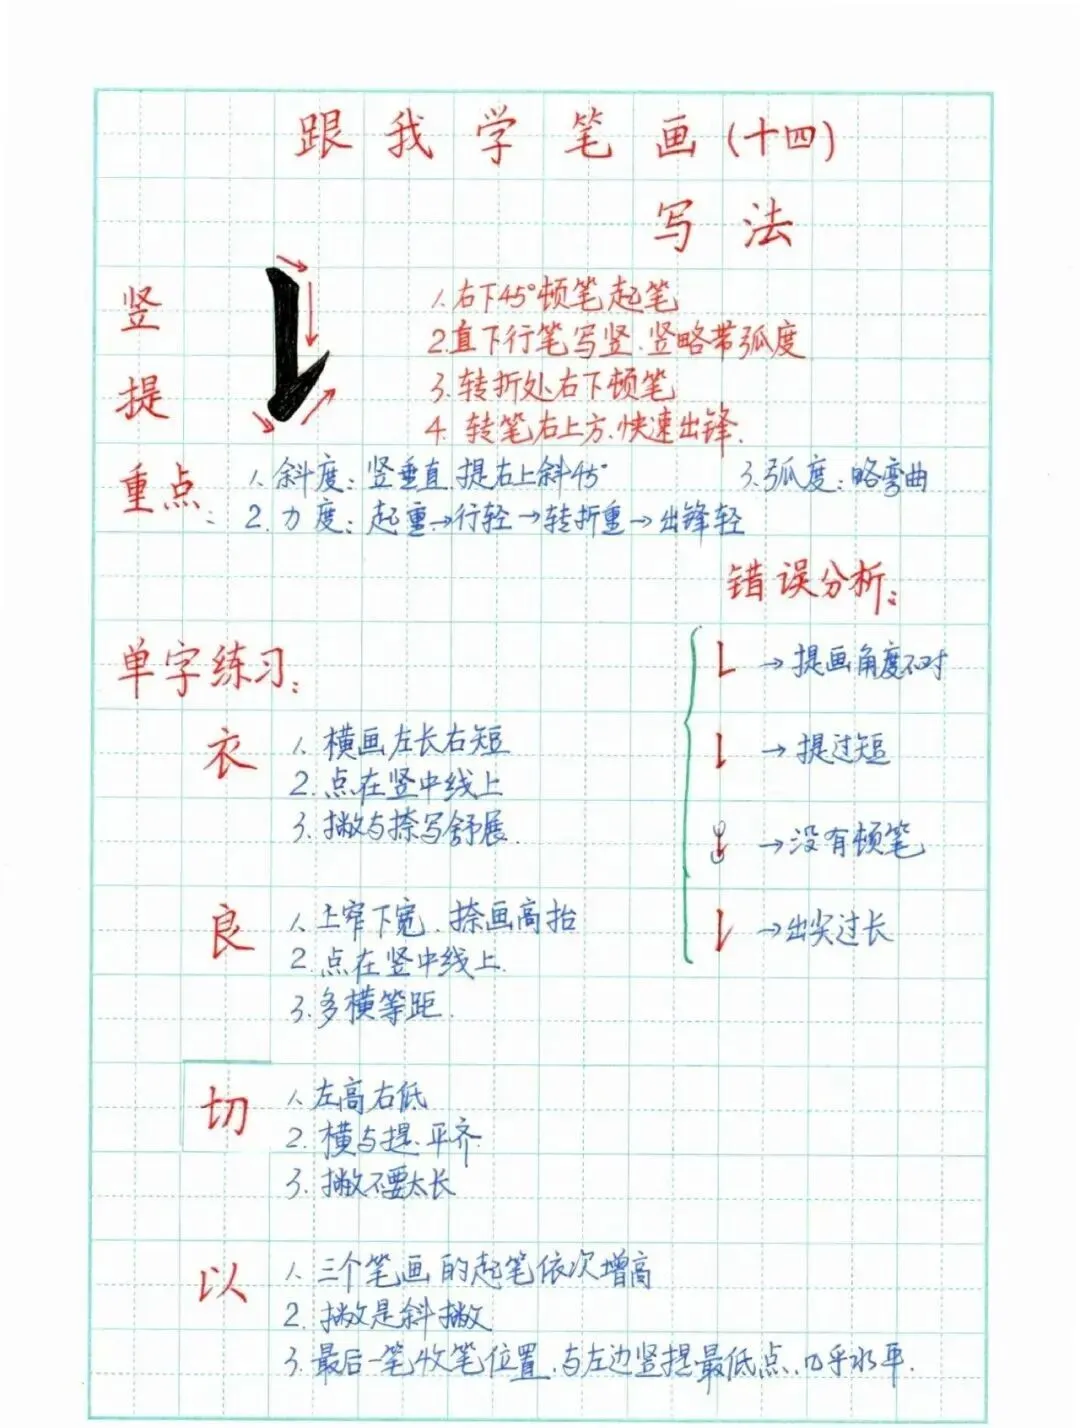 跟我学笔画(十四)
写法
竖提
1.右下45°顿笔起笔
2.直下行笔写竖.竖略带弧度
3.转折处右下顿笔
4.转笔右上方.快速出锋.
重点:
1.斜度:竖垂直.提右上斜45°
3.弧度:略弯曲
2.力度:起重→行轻→转折重→出锋轻
错误分析:
→提画角度不对
→提过短
→没有顿笔
→出尖过长
单字练习:
衣
1.横画左长右短
2.点在竖中线上
3.撇与捺写舒展.
良
1.上窄下宽.捺画高抬
2.点在竖中线上.
3.多横等距.
切
1.左高右低
2.横与提.平齐
3.撇不要太长
以
1.三个笔画的起笔依次增高
2.撇是斜撇
3.最后一笔收笔位置.与左边竖提最低点.几乎水平.